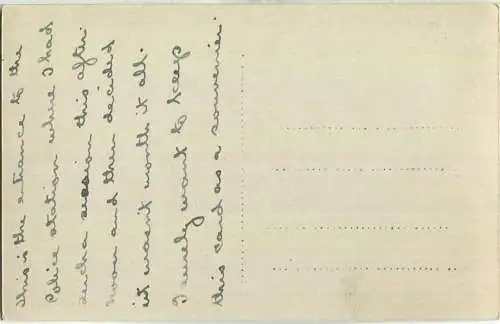 This is the entrance to the
Police station where I had
such a session this after
noon and then decided
it wasn't worth it all.
I surely want to keep
this card as a souvenier.